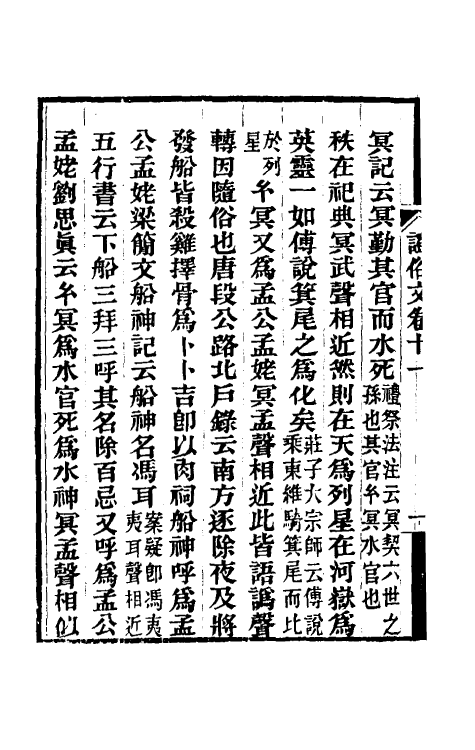 冥記云冥勤其官而水死禮祭法注云冥契六世之孫也其官玄冥水官也
秩在祀典冥武聲相近然則在天爲列星在河嶽爲
英靈一如傅說箕尾之爲化矣莊子大宗師云傅說乘東維騎箕尾而比
於列星玄冥又爲孟公孟姥冥孟聲相近此皆語譌聲
轉因隨俗也唐段公路北戶錄云南方逐除夜及將
發船皆殺雞擇骨爲卜卜吉卽以肉祠船神呼爲孟
公孟姥梁簡文船神記云船神名馮耳案疑卽馮夷夷耳聲相近
五行書云下船三拜三呼其名除百忌又呼爲孟公
孟姥劉思眞云玄冥爲水官死爲水神冥孟聲相似
證俗文卷十一 一